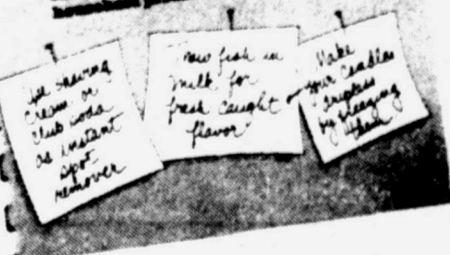 Use shaving
cream or
club soda
as instant
spot
remover
Thaw fish in
milk for
fresh caught
flavor
Make
your candles
dripless
by freezing
them